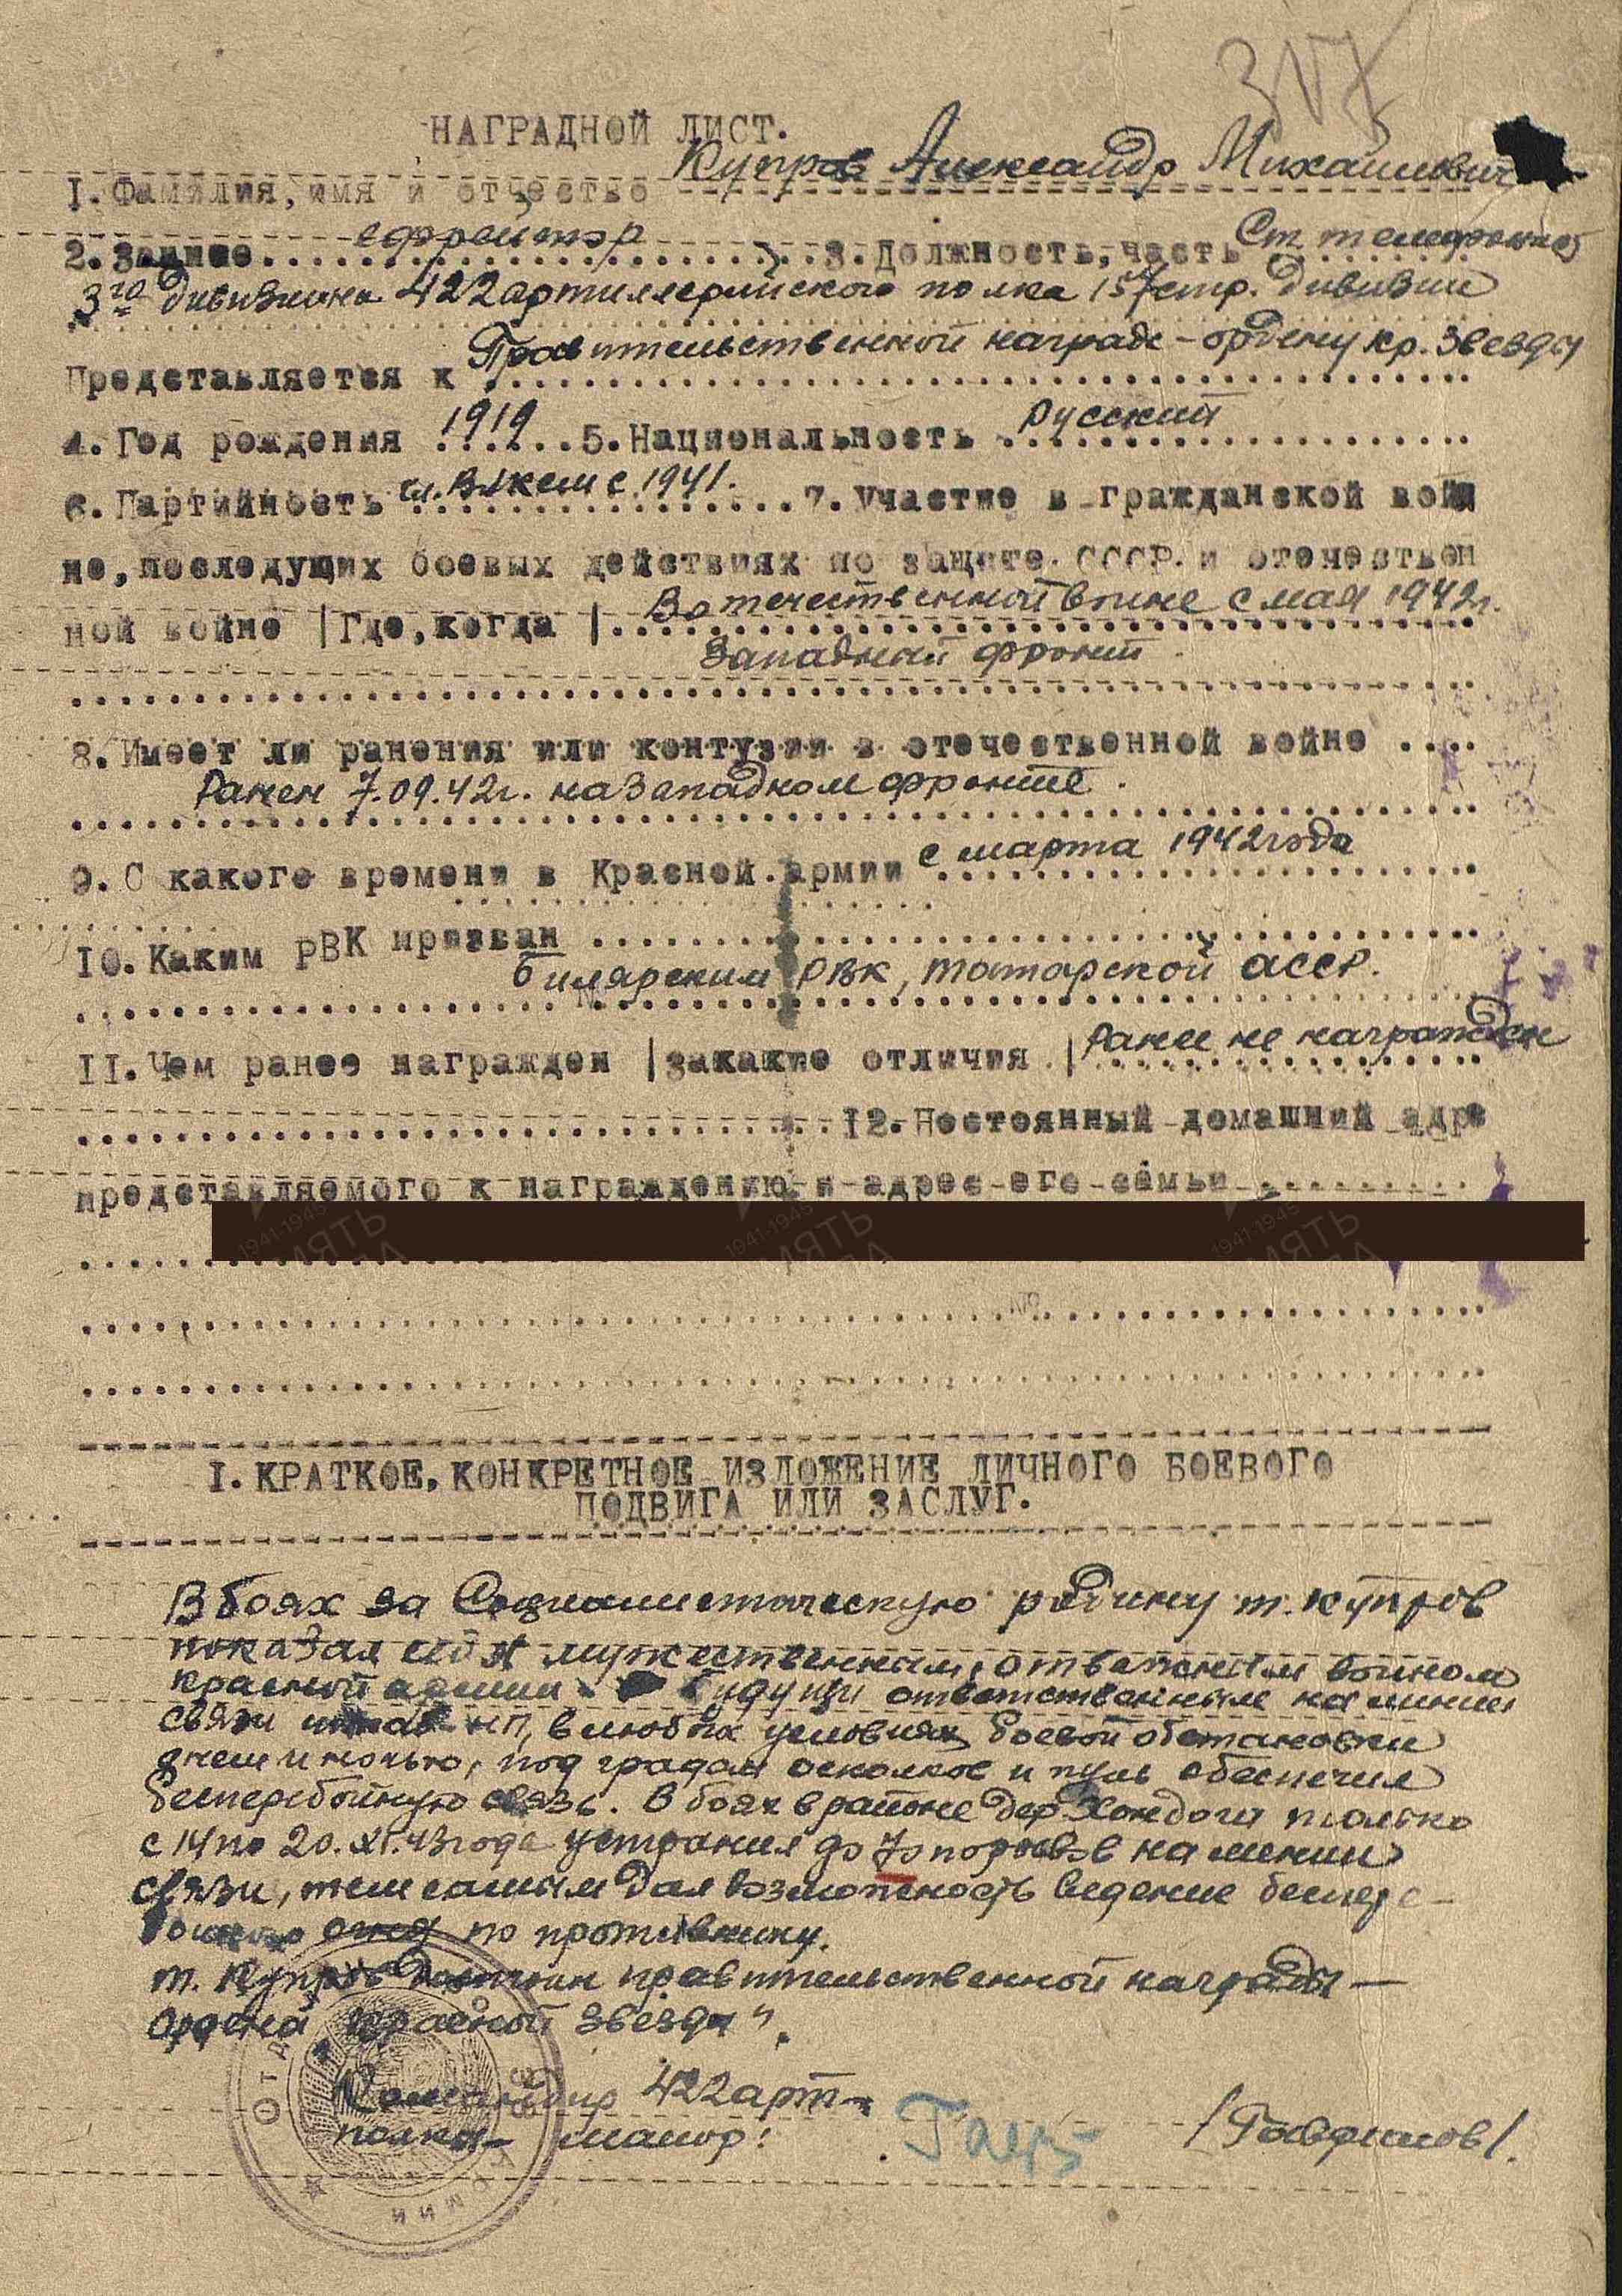 317
НАГРАДНОЙ ЛИСТ.
I. Фамилия, имя и отчество Купров Александр Михайлович
2. Звание ефрейтор 3. Должность, часть Ст. телефонист
3го дивизиона 422 артиллерийского полка 157 стр. дивизии
Представляется к Правительственной награде - ордену Кр. Звезды
4. Год рождения 1919 5. Национальность русский
6. Партийность чл. ВЛКСМ с 1941. 7. Участие в гражданской вой
не, последущих боевых действиях по защите СССР и отечествен
ной войне |Где, когда | В отечественной войне с мая 1942г.
Западный фронт.
8. Имеет ли ранения или контузии в отечественной войне
Ранен 7.09.42г. на Западном фронте.
9. С какого времени в Красной армии с марта 1942 года
10. Каким РВК призван
Билярским РВК, Татарской АССР.
II. Чем ранее награжден |закакие отличия | Ранее не награжден
12. Постоянный домашний адре
представляемого к награждению и адрес его семьи
I. КРАТКОЕ, КОНКРЕТНОЕ ИЗЛОЖЕНИЕ ЛИЧНОГО БОЕВОГО
ПОДВИГА ИЛИ ЗАСЛУГ.
В боях за Социалистическую родину т. Купров
показал себя мужественным, отважным воином
Красной армии. Будучи ответственным на линии
связи НП, в любых условиях боевой обстановки
днем и ночью, под градом осколков и пуль обеспечил
бесперебойную связь. В боях в районе дер. только
с 14 по 20.XI.43 года устранил до 70 порывов на линии
связи, тем самым дал возможность ведение беспере-
огня по противнику.
т. Купров достоин правительственной награды —
Ордена „Красной Звезды".
Командир 422 арт-
полка – майор:
/Гавфилов/.